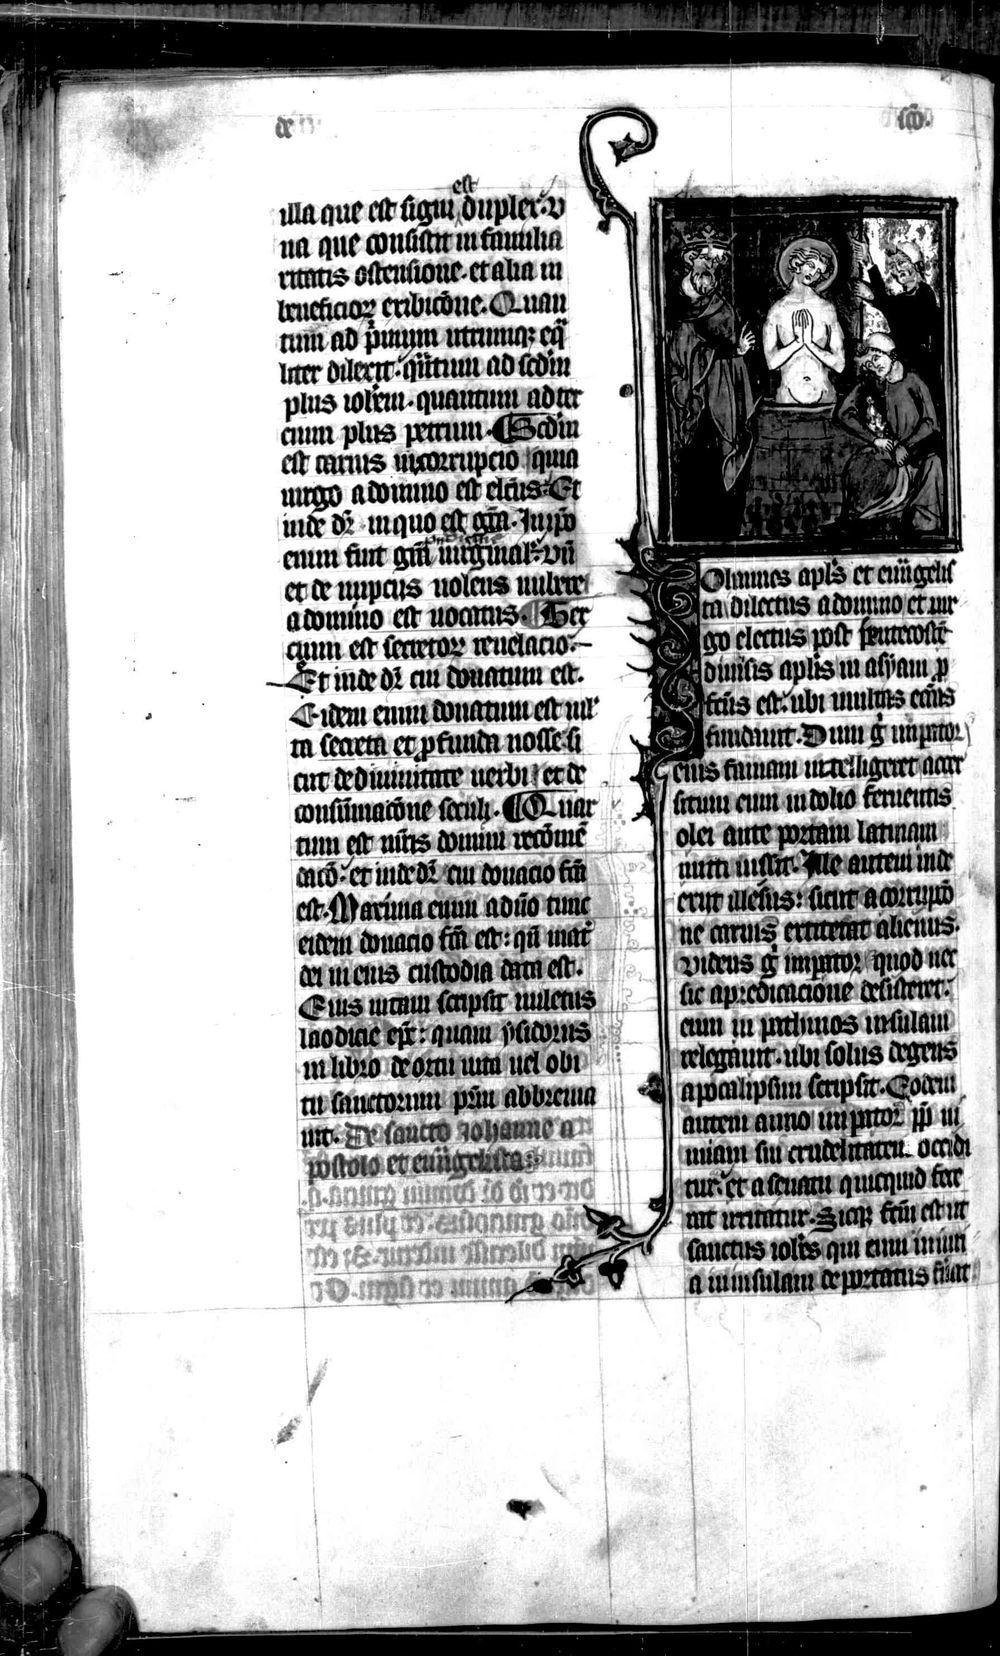 de
sco.
est
illa que est signi duplex. v
na que consistit in familia
ritatis ostensione. et alia in
beneficioꝝ exibicōne. Quan
tum ad p̄mum utrumqꝫ eq̄
liter dilexit. qn̄tum ad scdm
plus ioh̄em. quantum ad ter
cium plus petrum. ¶ Scdm
est carnis incorrupcio quia
uirgo a domino est elc̄us. Et
inde dr̄ in quo est gr̄a. In ip̄o
enim fuit gr̄a uirginal. vn̄
et de nupciis uolens nubere
a domino est uocatus. ¶ Ter
cium est secretoꝝ reuelacio.
Et inde dr̄ cui donatum est.
Eidem enim donatum est ml
ta secreta et ꝓfunda nosse. si
cut de diuinitate uerbi et de
consūmacōne seculi. ¶ Quar
tum est mr̄is domini recōmē
dacō. et inde dr̄ cui donacio fc̄a
est. Maxima enim a dn̄o tunc
eidem donacio fc̄a est: qn̄ mat̄
dei in eius custodia data est.
Eius uitam scripsit miletus
laodicie ep̄c: quam ysidorus
in libro de ortu uita uel obi
tu sanctorum pr̄m abbreuia
uit. De sancto Iohanne a
postolo et euūgelista.
Iohannes apl̄s et euūgelis
ta dilectus a domino et uir
go electus post pentecostē
diuisis apl̄is in asyam p̄
fectus est. ubi multas ecc̄as
fundauit. Dum g̊ impator
eius famam intelligeret accer
situm eum in dolio feruentis
olei ante portam latinam
mitti iussit. Ille autem inde
exiit illesus: sicut a corrupcō
ne carnis extiterat alienus.
Videns g̊ impator quod nec
sic a predicacione desisteret.
eum in pathmos insulam
relegauit. ubi solus degens
apocalipsim scripsit. Eodem
autem anno impator ꝓp̄ ni
miam sui crudelitatem occidi
tur. et a senatu quicquid fece
rat irritatur. Sicqꝫ fc̄m est ut
sanctus ioh̄es qui cum iniuri
a in insulam deportatus fūat